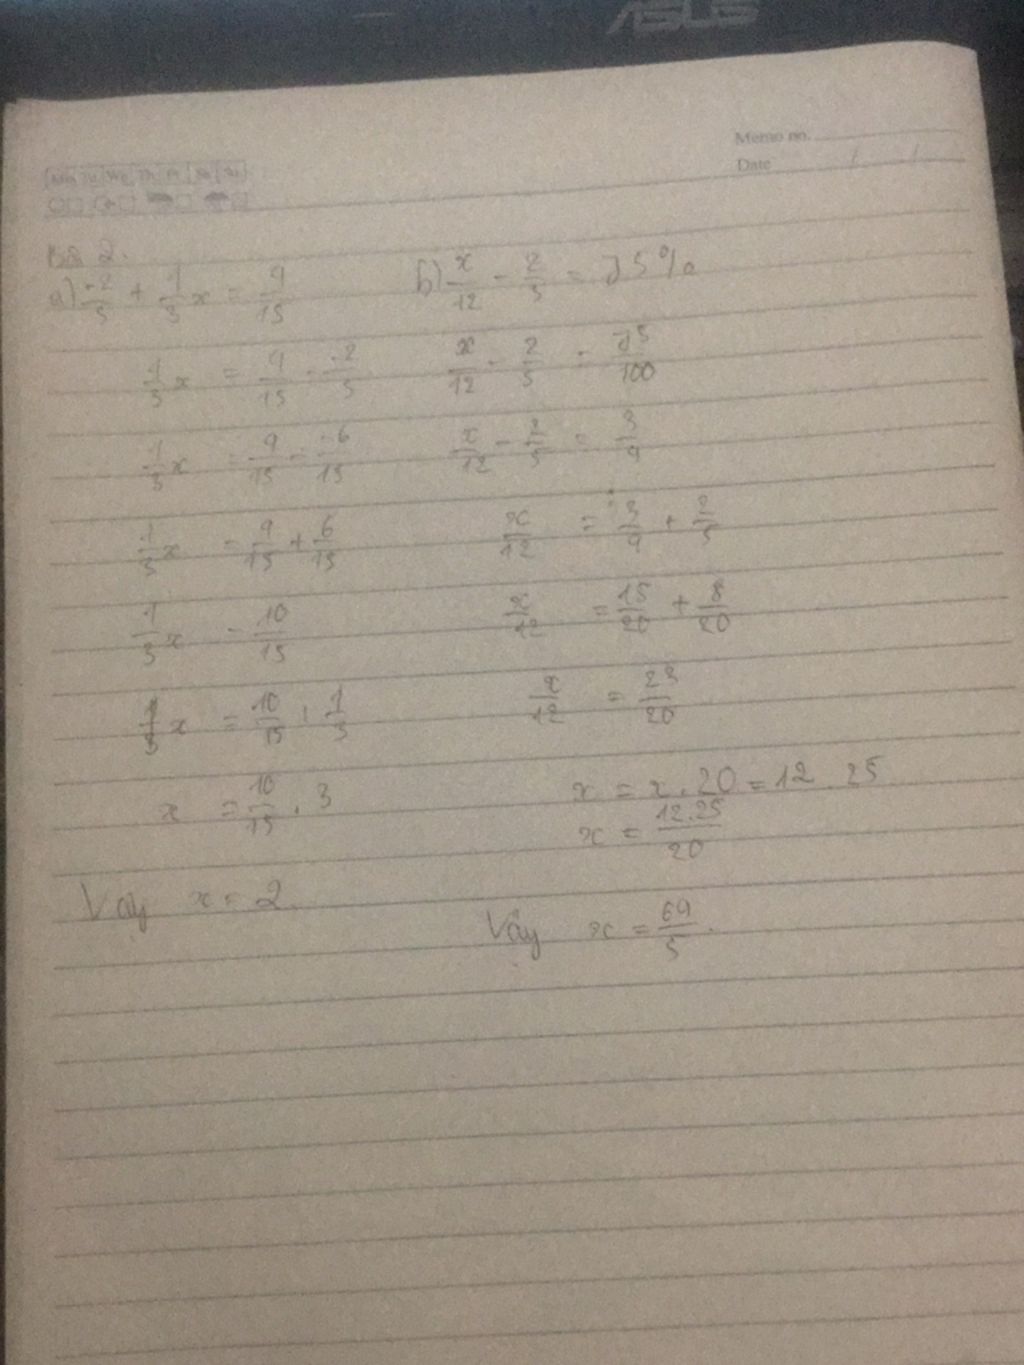 ASUS
Memo no.
Date / /
Bài 2.
a) -2/5 + 1/3 x = 4/15
1/3 x = 4/15 - -2/5
1/3 x = 4/15 - -6/15
1/3 x = 4/15 + 6/15
1/3 x = 10/15
1/3 x = 10/15 : 1/3
x = 10/15 . 3
Vậy x = 2.
b) x/12 - 2/5 = 75%
x/12 - 2/5 = 75/100
x/12 - 2/5 = 3/4
x/12 = 3/4 + 2/5
x/12 = 15/20 + 8/20
x/12 = 23/20
x = x . 20 = 12 . 25
x = 12.25/20
Vậy x = 69/5.